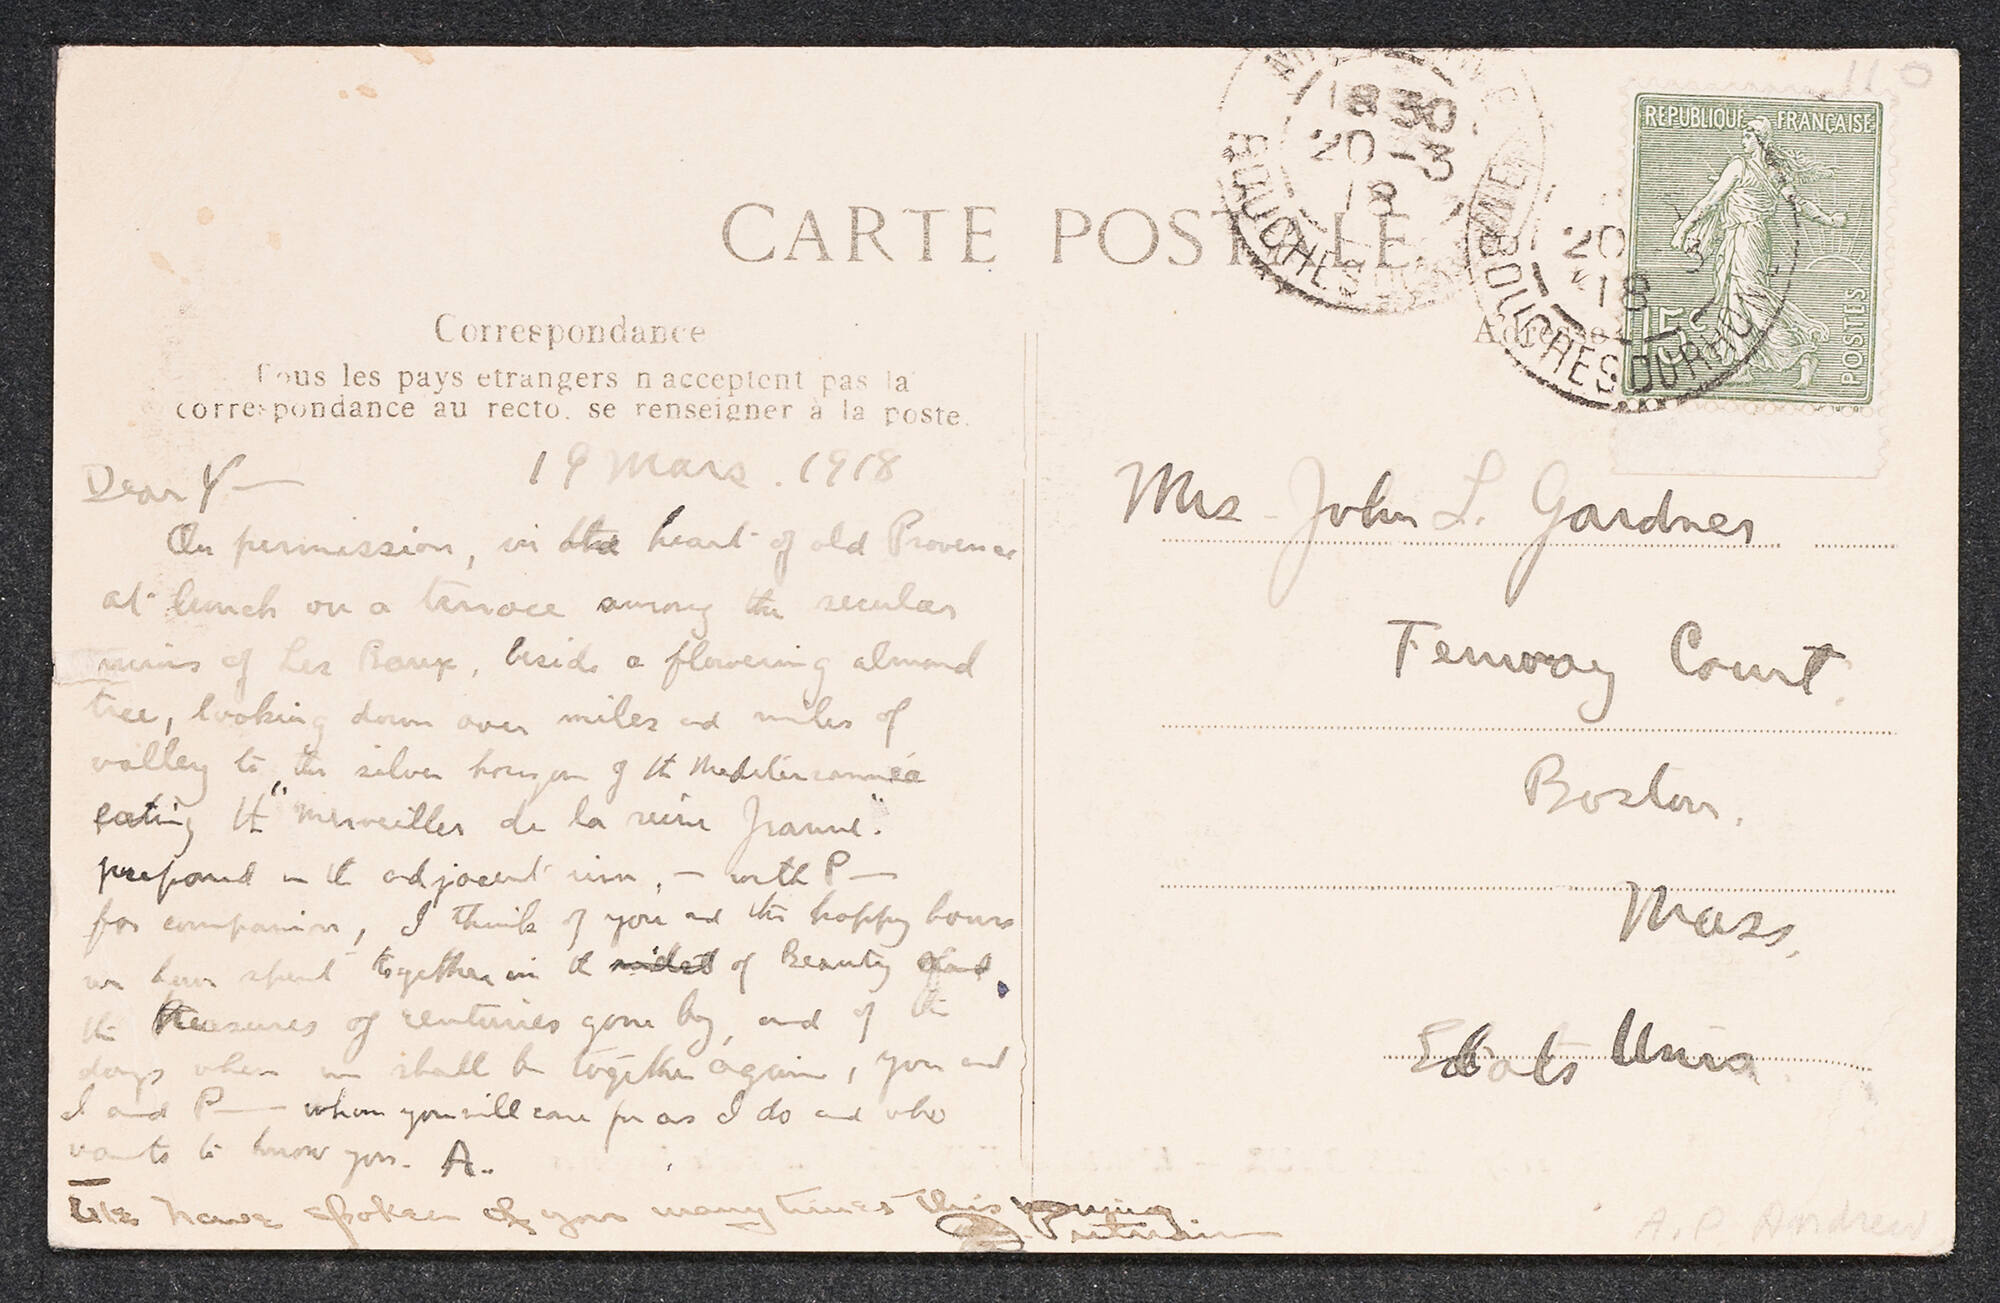 CARTE POSTALE
Correspondance
Tous les pays etrangers n acceptent pas la
correspondance au recto. se renseigner à la poste.
19 Mars. 1918
Dear Y—
On permission, in the heart of old Provence
at lunch on a terrace among the secular
ruins of Les Baux, beside a flowering almond
tree, looking down over miles and miles of
valley to the silver horizon of the Mediterrannée
eating the "merveilles de la reine Jeanne."
prepared in the adjacent inn, — with P—
for companion, I think of you and the happy hours
we have spent together in the midst of Beauty and
the treasures of centuries gone by, and of the
days when we shall be together again, you and
I and P— whom you will care for as I do and who
wants to know you. A.
We have spoken of you many times this morning
Adresse
Mrs John L. Gardner
Fenway Court.
Boston.
Mass.
Etats Unis
A. P. Andrew
110
REPUBLIQUE FRANÇAISE
15c
POSTES
1830
20-3
18
BOUCHES DU RHONE
20 3
18
BOUCHES DU RHONE